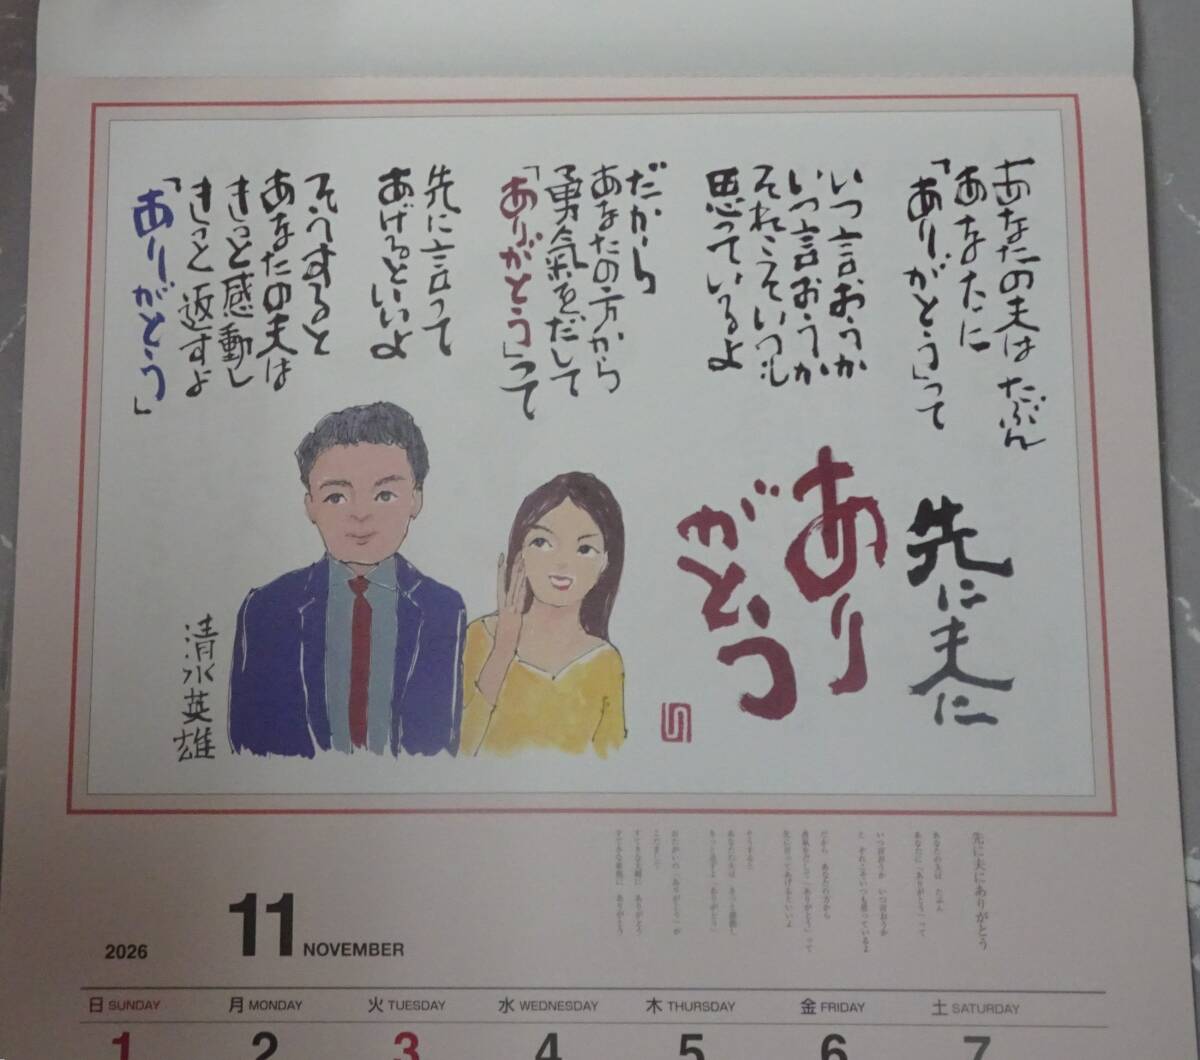 あなたの夫は たぶん
あなたに
「ありがとう」って
いつ言おうか
いつ言おうか
それこそいつも
思っているよ
だから
あなたの方から
勇氣をだして
「ありがとう」って
先に言って
あげるといいよ
そうすると
あなたの夫は
きっと感動し
きっと返すよ
「ありがとう」
先に夫に
あり
がとう
清水英雄
先に夫にありがとう
あなたの夫は たぶん
あなたに「ありがとう」って
いつ言おうか いつ言おうか
それこそいつも思っているよ
だから あなたの方から
勇気をだして「ありがとう」って
先に言ってあげるといいよ
そうすると
あなたの夫は きっと感動し
きっと返すよ「ありがとう」
2026
11 NOVEMBER
日 SUNDAY
月 MONDAY
火 TUESDAY
水 WEDNESDAY
木 THURSDAY
金 FRIDAY
土 SATURDAY
1 2 3 4 5 6 7